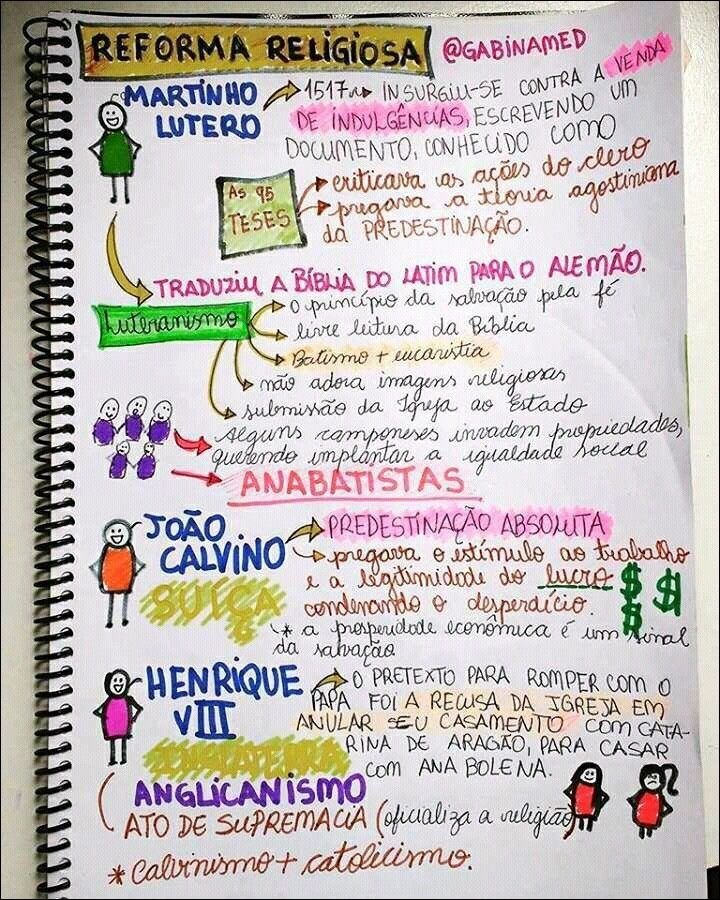 REFORMA RELIGIOSA @GABINAMED
MARTINHO LUTERO
1517 INSURGIU-SE CONTRA A VENDA
DE INDULGÊNCIAS, ESCREVENDO UM
DOCUMENTO, CONHECIDO COMO
AS 95 TESES
criticava as ações do clero
pregava a teoria agostiniana
da PREDESTINAÇÃO.
TRADUZIU A BÍBLIA DO LATIM PARA O ALEMÃO.
Luteranismo
o princípio da salvação pela fé
livre leitura da Bíblia
Batismo + eucaristia
não adora imagens religiosas
submissão da Igreja ao Estado
Alguns camponeses invadem propriedades,
querendo implantar a igualdade social
ANABATISTAS
JOÃO CALVINO
SUÍÇA
PREDESTINAÇÃO ABSOLUTA
pregava o estímulo ao trabalho
e a legitimidade do lucro $ $
condenando o desperdício. $
* a prosperidade econômica é um sinal
da salvação
HENRIQUE VIII
INGLATERRA
O PRETEXTO PARA ROMPER COM O
PAPA FOI A RECUSA DA IGREJA EM
ANULAR SEU CASAMENTO COM CATA-
RINA DE ARAGÃO, PARA CASAR
COM ANA BOLENA.
ANGLICANISMO
ATO DE SUPREMACIA (oficializa a religião)
* Calvinismo + catolicismo.